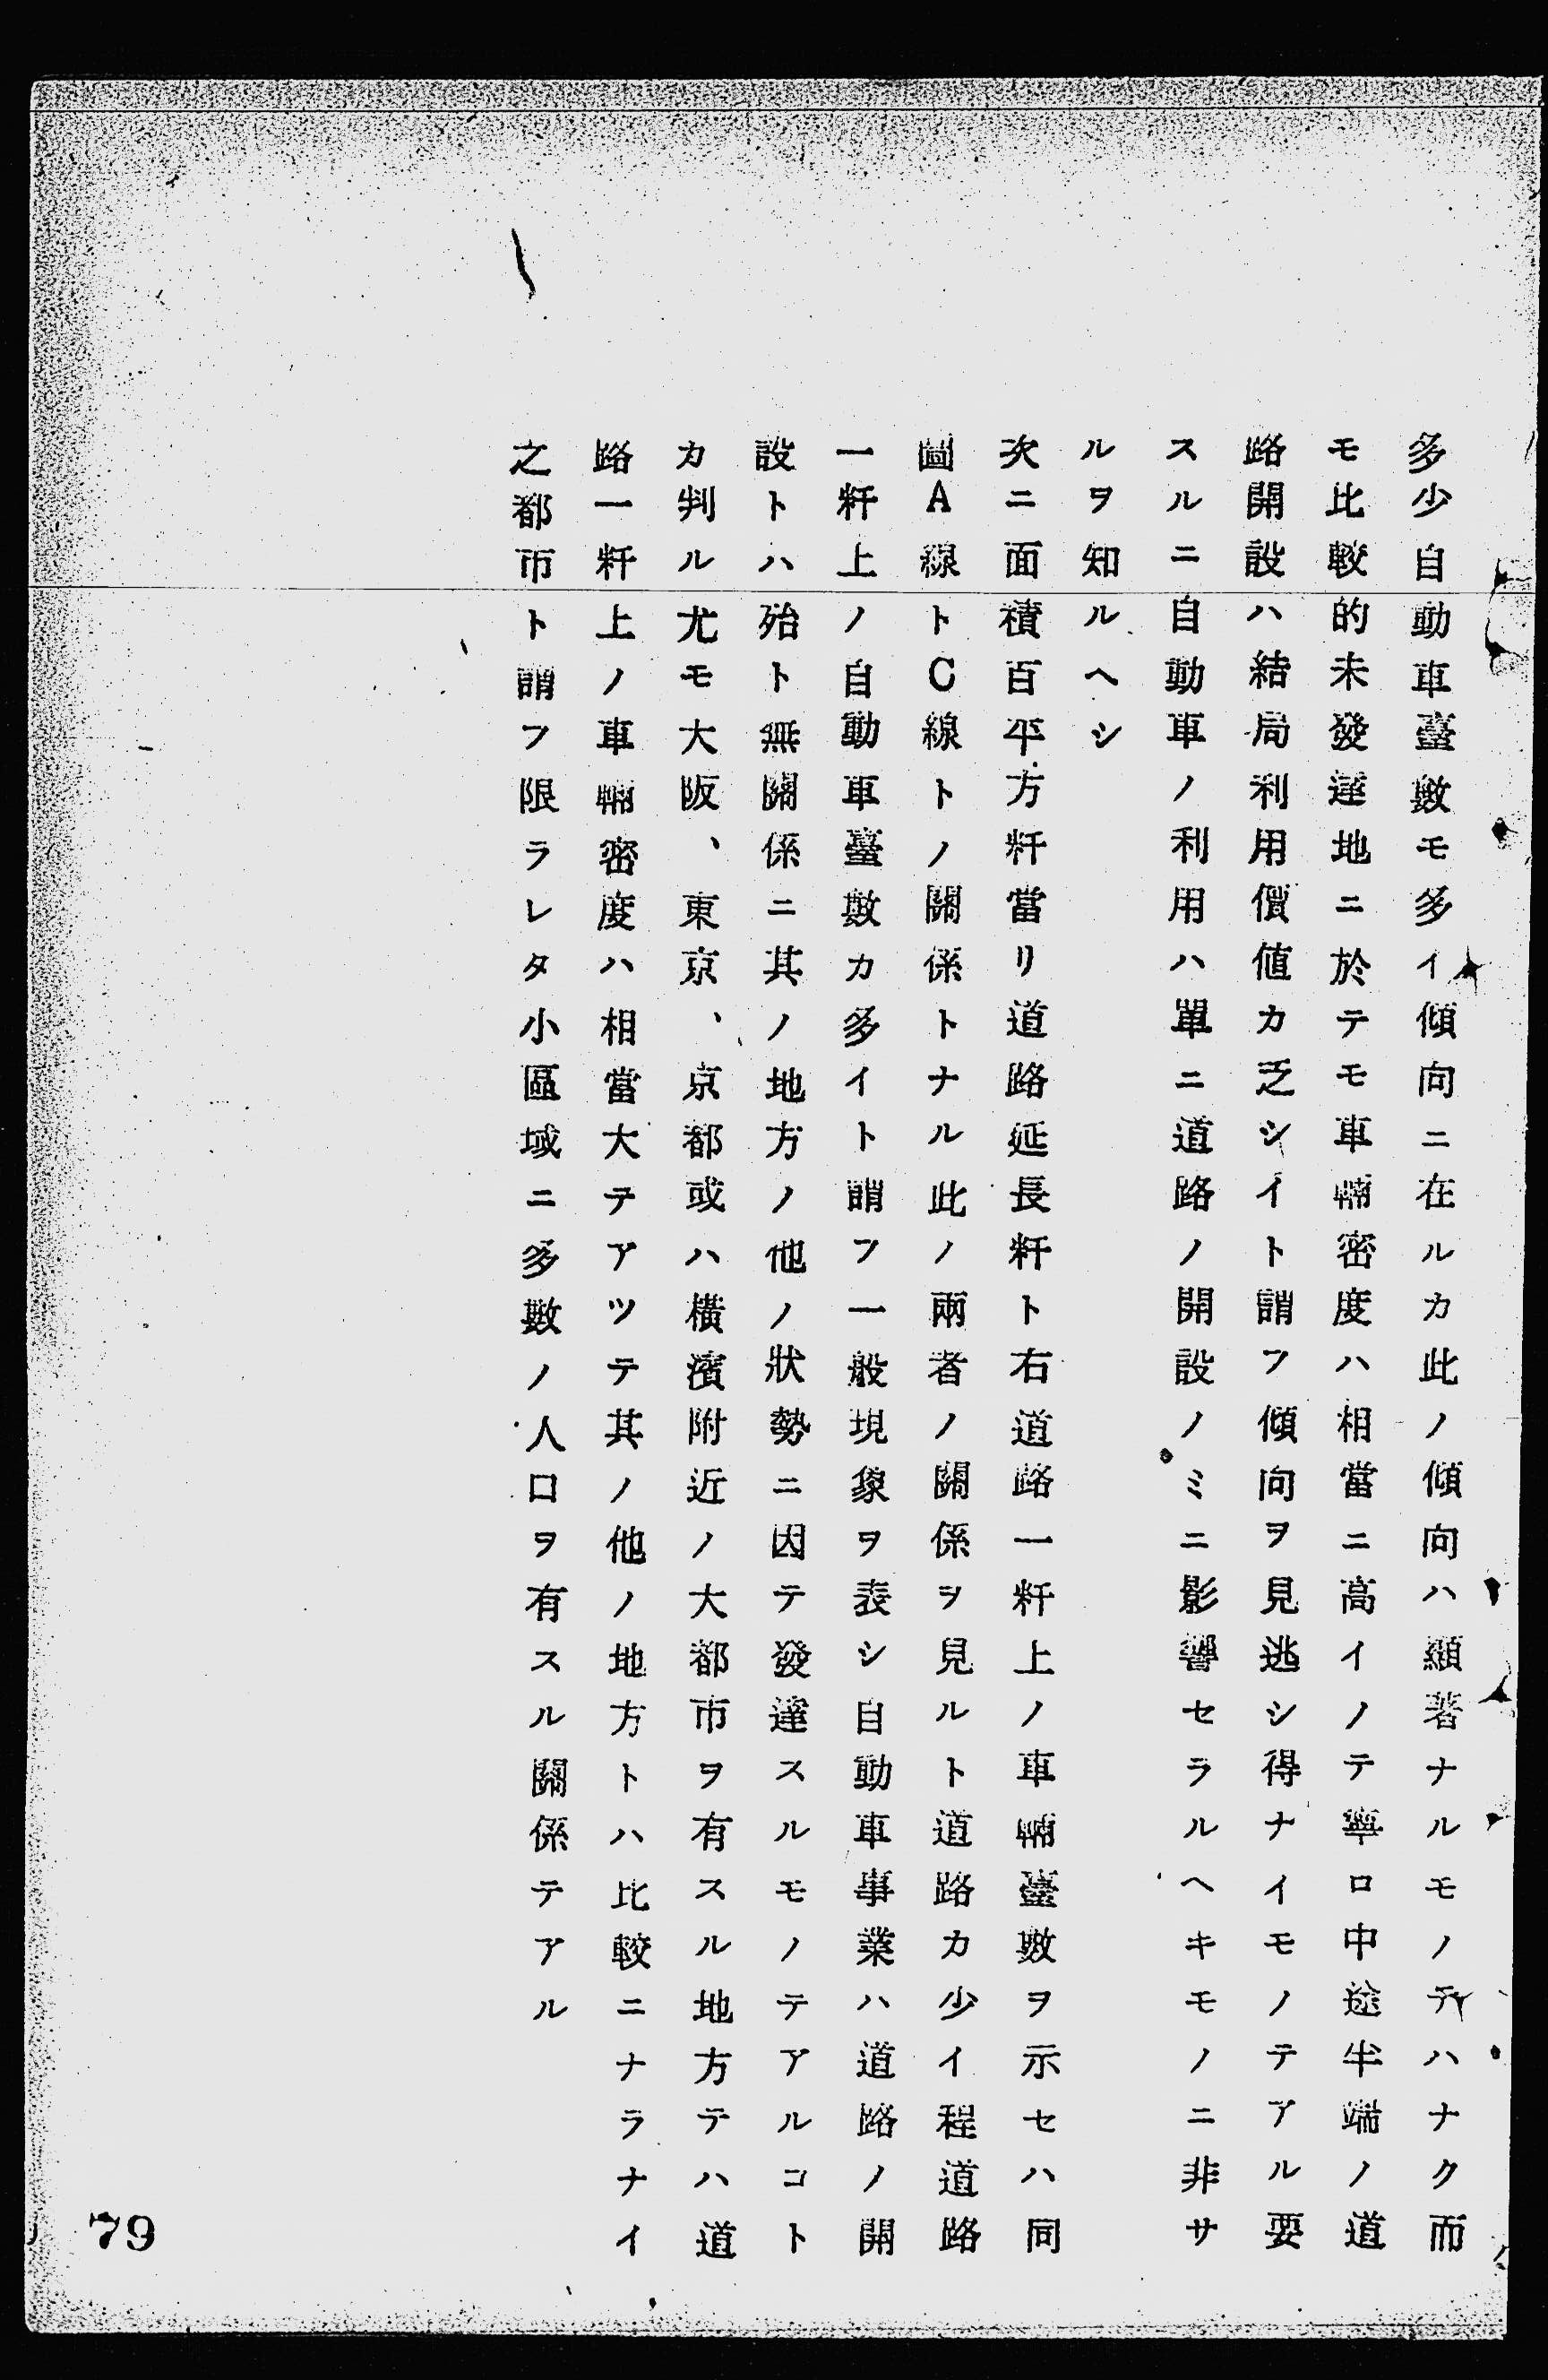 多少自動車臺數モ多イ傾向ニ在ルカ此ノ傾向ハ顯著ナルモノテハナク而
モ比較的未發達地ニ於テモ車輛密度ハ相當ニ高イノテ寧ロ中途半端ノ道
路開設ハ結局利用價値カ乏シイト謂フ傾向ヲ見逃シ得ナイモノテアル要
スルニ自動車ノ利用ハ單ニ道路ノ開設ノミニ影響セラルヘキモノニ非サ
ルヲ知ルヘシ
次ニ面積百平方粁當リ道路延長粁ト右道路一粁上ノ車輛臺數ヲ示セハ同
圖A線トC線トノ關係トナル此ノ兩者ノ關係ヲ見ルト道路カ少イ程道路
一粁上ノ自動車臺數カ多イト謂フ一般現象ヲ表シ自動車事業ハ道路ノ開
設トハ殆ト無關係ニ其ノ地方ノ他ノ狀勢ニ因テ發達スルモノテアルコト
カ判ル尤モ大阪、東京、京都或ハ橫濱附近ノ大都市ヲ有スル地方テハ道
路一粁上ノ車輛密度ハ相當大テアツテ其ノ他ノ地方トハ比較ニナラナイ
之都市ト謂フ限ラレタ小區域ニ多數ノ人口ヲ有スル關係テアル
79